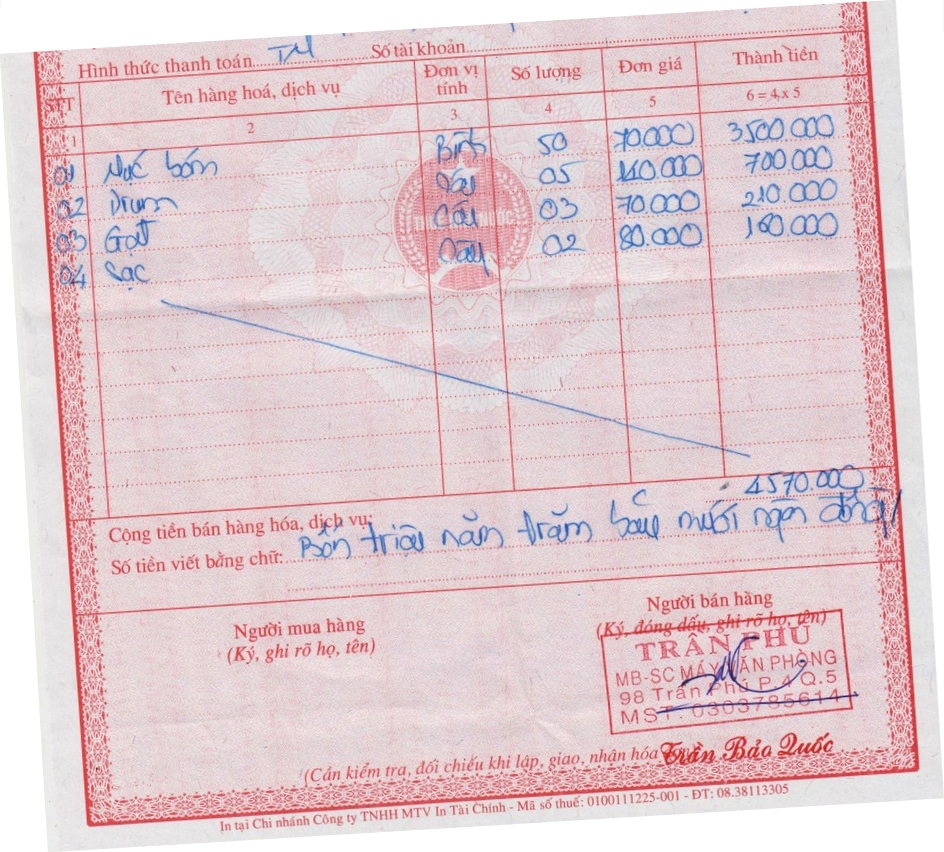 Hình thức thanh toán TM Số tài khoản
STT Tên hàng hoá, dịch vụ Đơn vị tính Số lượng Đơn giá Thành tiền
1 2 3 4 5 6 = 4 x 5
01 Mực bơm Bình 50 70.000 3500.000
02 Drum Cây 05 140.000 700.000
03 Gạt Cây 03 70.000 210.000
04 Sạc Cây 02 80.000 160.000
Cộng tiền bán hàng hóa, dịch vụ: 4570.000
Số tiền viết bằng chữ: Bốn triệu năm trăm bảy mươi ngàn đồng
Người mua hàng
(Ký, ghi rõ họ, tên)
Người bán hàng
(Ký, đóng dấu, ghi rõ họ, tên)
TRẦN PHÚ
MB-SC MÁY VĂN PHÒNG
98 Trần Phú P.4 Q.5
MST: 0303785614
Trần Bảo Quốc
(Cần kiểm tra, đối chiếu khi lập, giao, nhận hóa
In tại Chi nhánh Công ty TNHH MTV In Tài Chính - Mã số thuế: 0100111225-001 - ĐT: 08.38113305